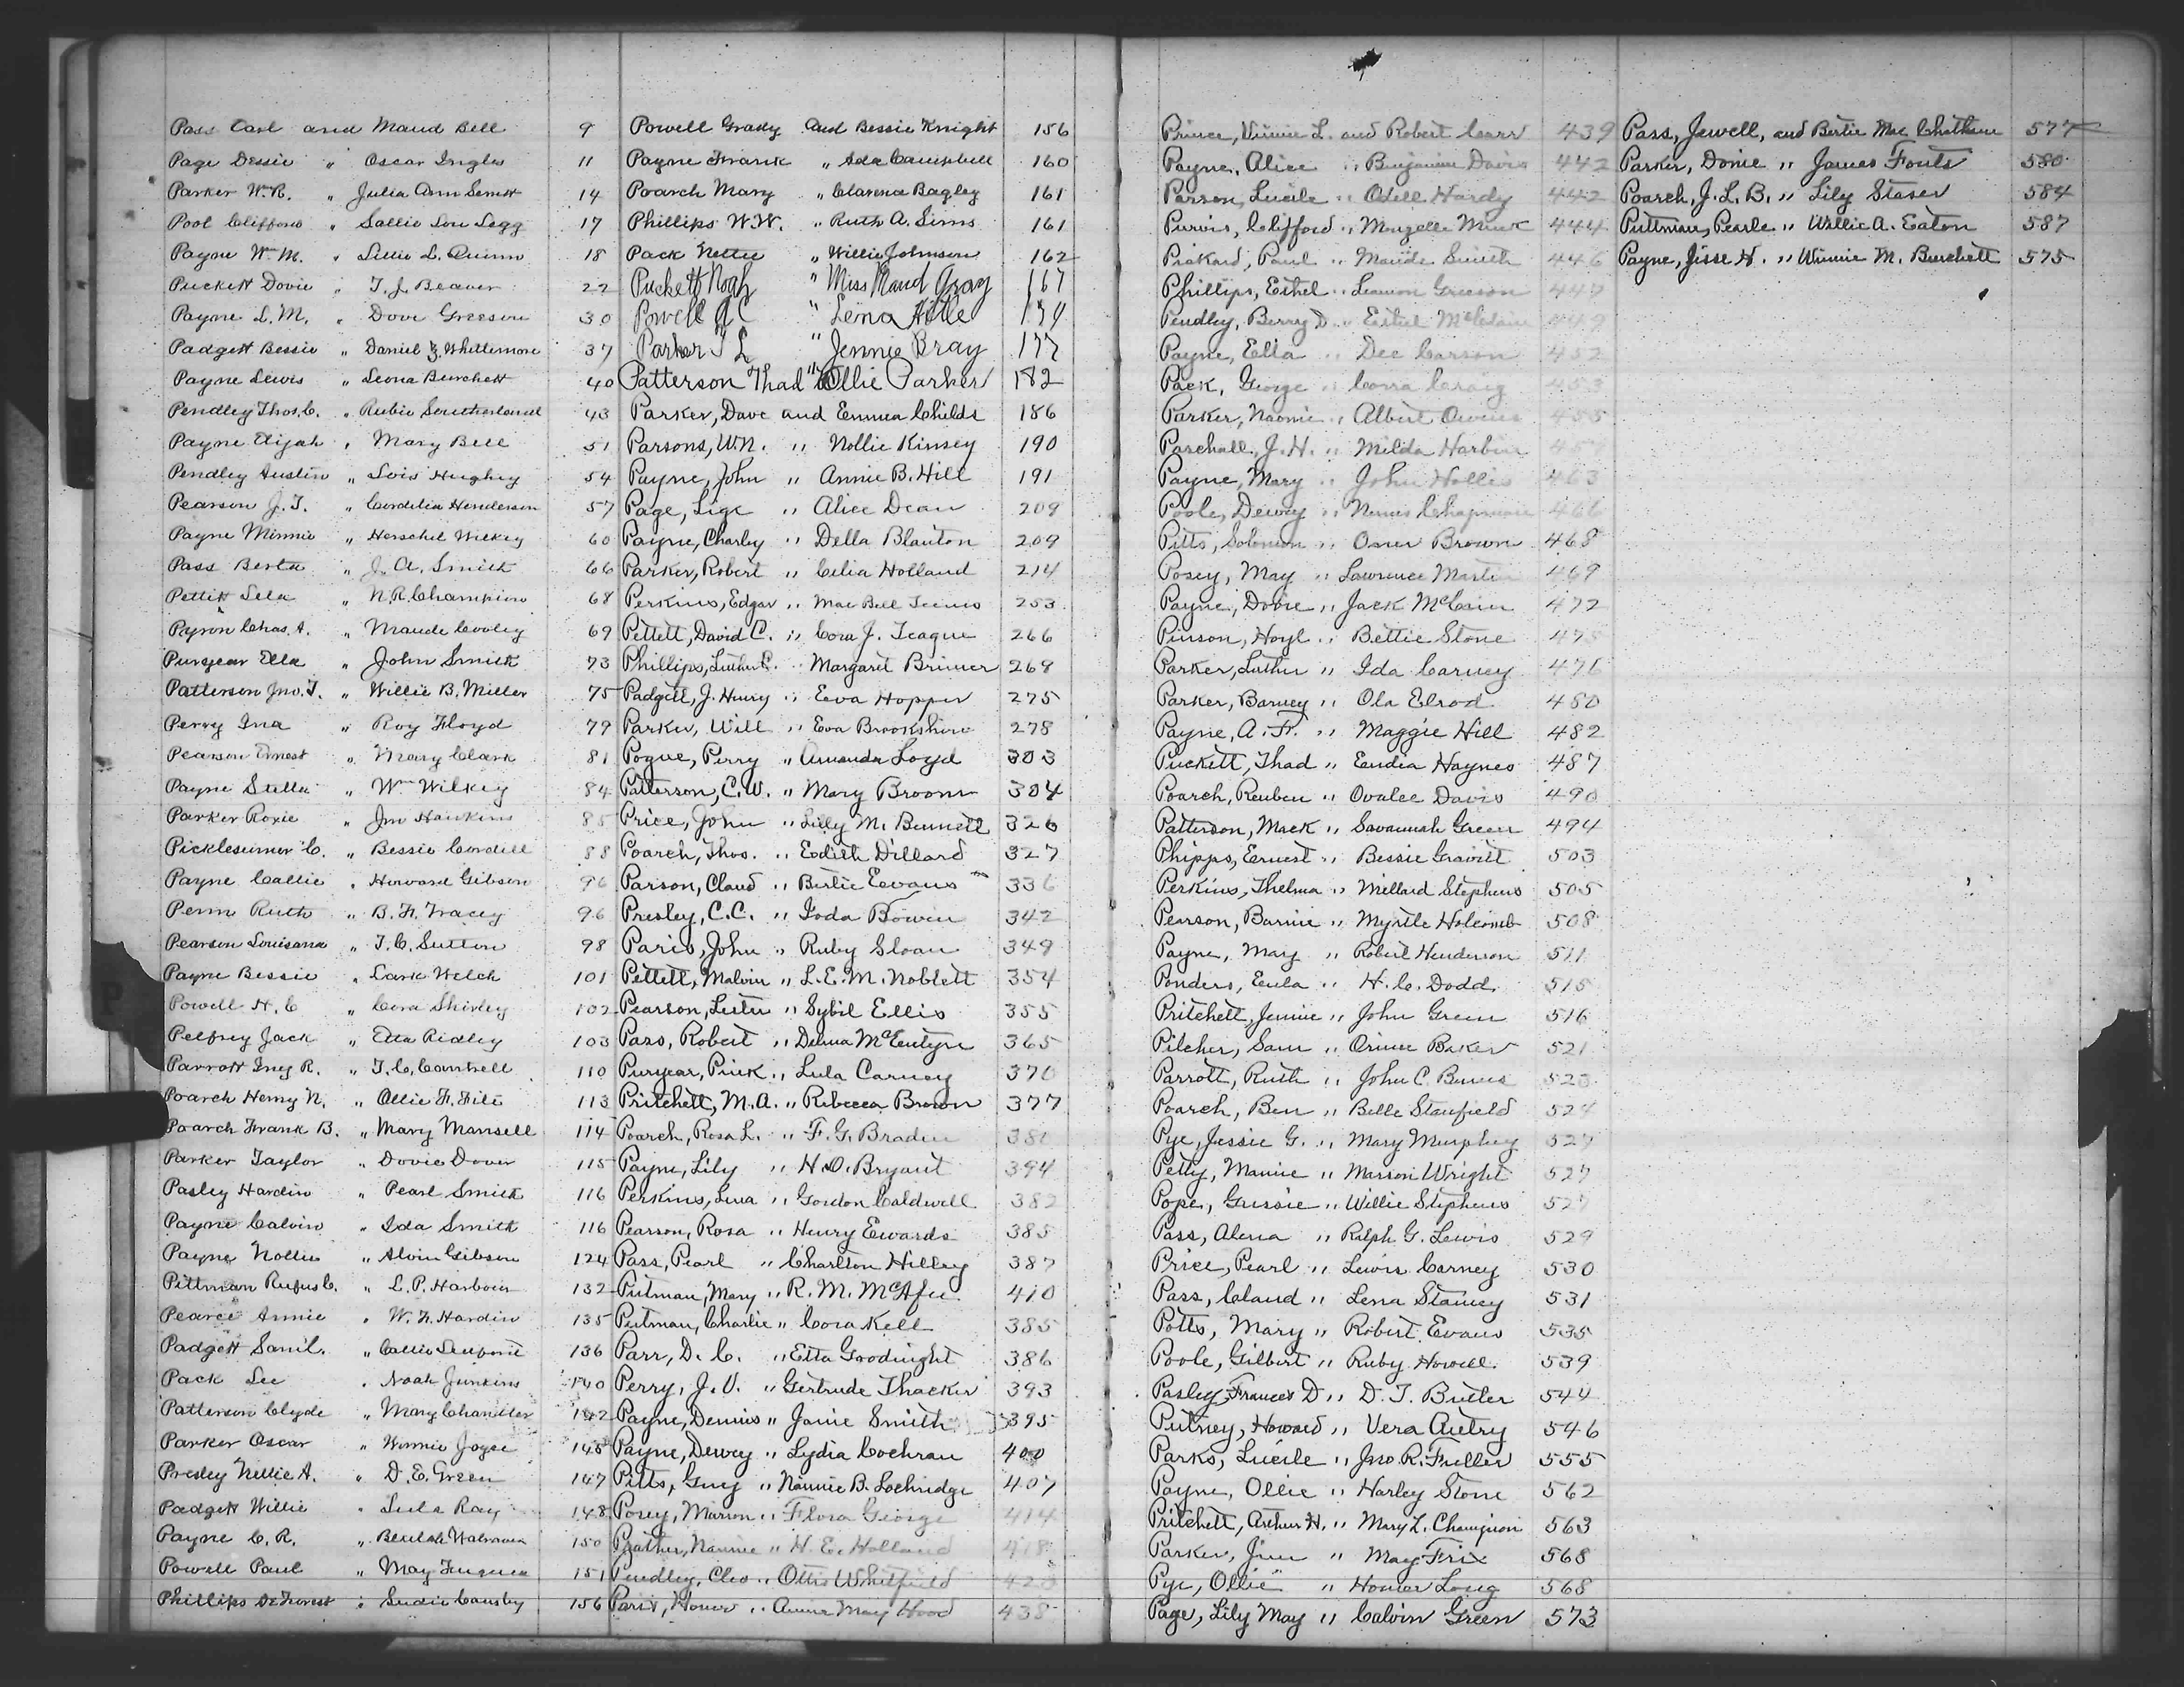 Pass Carl and Maud Bell 9
Page Dessie " Oscar Ingles 11
Parker W.R. " Julia Ann 14
Pool Clifford " Sallie Lou Legg 17
Payne Wm M. " Lillie L. Quinn 18
Puckett Dovie " T.J. Beaver 22
Payne L.M. " Dove Greeson 30
Padgett Bessie " Daniel Z. Whittemore 37
Payne Lewis " Leona Burchett 40
Pendley Thos. C. " Rubie Southerland 43
Payne Elijah " Mary Bell 51
Pendley Austin " Lois Hughey 54
Pearson J.T. " Cordelia Henderson 57
Payne Minnie " Herschel Wilkey 60
Pass Berta " J.A. Smith 66
Pettitt Lela " N.R. Champion 68
Pyron Chas. A. " Maude Cooley 69
Puryear Ella " John Smith 73
Patterson Jno. T. " Willie B. Miller 75
Perry Ina " Roy Floyd 79
Pearson Ernest " Mary Clark 81
Payne Stella " Wm Wilkey 84
Parker Roxie " Jno Hawkins 85
Picklesimer C. " Bessie Cordell 88
Payne Callie " Howard Gibson 96
Penn Ruth " B.F. Tracey 96
Pearson Louisana " T.C. Sutton 98
Payne Bessie " Lark Welch 101
Powell H.C " Cora Shirley 102
Pelfrey Jack " Etta Ridley 103
Parrott Iney R. " T.C. Cantrell 110
Poarch Henry N. " Ollie F. Fite 113
Poarch Frank B. " Mary Mansell 114
Parker Taylor " Dovie Dover 115
Pasley Hardin " Pearl Smith 116
Payne Calvin " Ida Smith 116
Payne Nollie " Alvin Gibson 124
Pittman Rufus C. " L.P. Harbour 132
Pearce Annie " W.F. Hardin 135
Padgett Saml. " Callie 136
Pack Lee " Noah Junkins 140
Patterson Clyde " Mary Chandler 142
Parker Oscar " Winnie Joyce 145
Presley Nellie A. " D.E. Green 147
Padgett Willie " Lula Ray 148
Payne C.R. " Beulah 150
Powell Paul " May 151
Phillips DeForest " Sudie Causby 156
Powell Grady and Bessie Knight 156
Payne Frank " Ada Campbell 160
Poarch Mary " Clarence Bagley 161
Phillips W.W. " Ruth A. Sims 161
Pack Nettie " Willie Johnson 162
Puckett Noah " Miss Maud Gray 167
Powell G C " Lena Hitle 174
Parker T L " Jennie Bray 177
Patterson Thad " Ollie Parker 182
Parker, Dave and Emma Childs 186
Parsons, W.N. " Nollie Kinsey 190
Payne, John " Annie B. Hill 191
Page, Lige " Alice Dean 209
Payne, Charley " Della Blanton 209
Parker, Robert " Celia Holland 214
Perkins, Edgar " Mae Bell 253
Pettett, David C. " Cora J. Teague 266
Phillips, Luther C. " Margaret Brimer 269
Padgett, J. Henry " Eva Hopper 275
Parker, Will " Eva Brookshire 278
Pogue, Perry " Amanda Loyd 303
Patterson, C.W. " Mary Broom 304
Price, John " Lilly M. Bennett 326
Poarch, Thos. " Edith Dillard 327
Parson, Claud " Bertie Eevans 336
Presley, C.C. " Ioda Bowen 342
Paris, John " Ruby Sloan 349
Pettett, Malvin " L.E.M. Noblett 354
Pearson, Lester " Sybil Ellis 355
Pass, Robert " Delma McEntyre 365
Puryear, Pink " Lula Carney 370
Pritchett, M.A. " Rebecca Brown 377
Poarch, Rosa L. " F.G. Braden 381
Payne, Lily " H.O. Bryant 394
Perkins, Lena " Gordon Caldwell 382
Pearson, Rosa " Henry Edwards 385
Pass, Pearl " Charlton Hilley 387
Putman, Mary " R.M. McAfee 410
Putman, Charlie " Cora Kell 385
Parr, D.C. " Etta Goodnight 386
Perry, J.V. " Gertrude Thacker 393
Payne, Dennis " Janie Smith 395
Payne, Dewey " Lydia Cochran 400
Pitts, Guy " Nannie B. Lochridge 407
Posey, Marion " Flora George 414
Prather, Nannie " H.E. Holland 418
Pendley, Cleo " Ottis Whitfield 420
Paris, Homer " Anna May Hood 438
Prince, Vinnie L. and Robert Carr 439
Payne, Alice " Benjamin Davis 442
Parson, Lucile " Odell Hardy 442
Purvis, Clifford " Mozelle 444
Pickard, Paul " Maude Smith 446
Phillips, Ethel " Leamon Greeson 447
Pendley, Berry D. " Ethel McClain 449
Payne, Ella " Dee Carson 452
Pack, George " Corra Craig 453
Parker, Naomie " Albert Owens 455
Paschall, J.H. " Milda Harbin
Payne, Mary " John Hollis 463
Poole, Dewey " Chapman 466
Pitts, Solomon " Omer Brown 468
Posey, May " Lawrence Martin 469
Payne, Dovie " Jack McCain 472
Pinson, Hoyl " Bettie Stone 475
Parker, Luther " Ida Carney 476
Parker, Barney " Ola Elrod 480
Payne, A.F. " Maggie Hill 482
Puckett, Thad " Eudia Haynes 487
Poarch, Reuben " Ovalee Davis 490
Patterson, Mack " Savannah Green 494
Phipps, Ernest " Bessie Gravitt 503
Perkins, Thelma " Millard Stephens 505
Pearson, Barnie " Myrtle Holcomb 508
Payne, Mary " Robert Henderson 511
Ponders, Eula " H.C. Dodd 515
Pritchett, Jennie " John Green 516
Pilcher, Sam " Orine Baker 521
Parrott, Ruth " John C. 523
Poarch, Ben " Belle Stanfield 524
Pye, Jessie G. " Mary Murphey 527
Petty, Mamie " Marion Wright 527
Pope, Gussie " Willie Stephens 527
Pass, Alena " Ralph G. Lewis 529
Price, Pearl " Lewis Carney 530
Pass, Claud " Lena Stancy 531
Potts, Mary " Robert Evans 535
Poole, Gilbert " Ruby Howell 539
Pasley, Frances D " D.T. Butler 544
Putney, Howard " Vera Autry 546
Parks, Lucile " Jno. R. Fuller 555
Payne, Ollie " Harley Stone 562
Pritchett, Arthur H. " Mary L. Champion 563
Parker, Jim " May Frix 568
Pye, Ollie " Homer Long 568
Page, Lily May " Calvin Green 573
Pass, Jewell, and Bertie Mae Chatham 577
Parker, Donie " James Fouts 580
Poarch, J.L.B. " Lily Staser 584
Puttman, Pearle " Willie A. Eaton 587
Payne, Jisse H. " Winnie M. Burchett 575